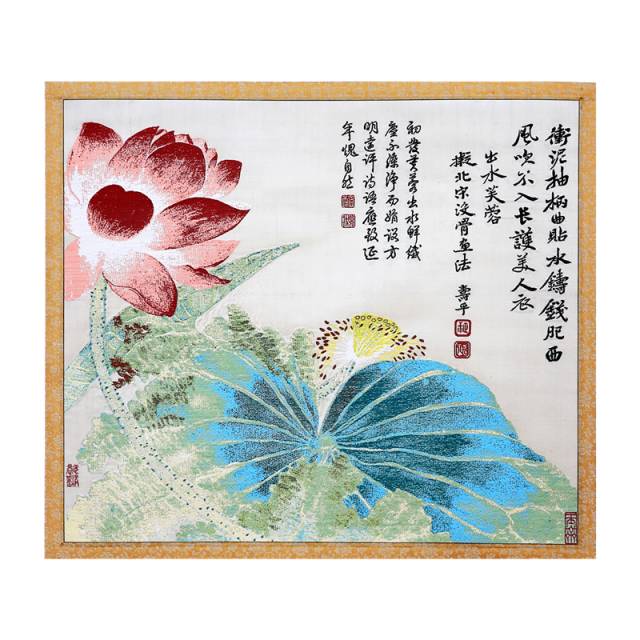 衝泥抽柄曲貼水鑄錢肥西
風吹不入長護美人衣
出水芙蓉
擬北宋沒骨画法
壽平
初發芙蓉出水鮮纖
塵不染淨而娟
方
明遠評詩語應
年愧自然